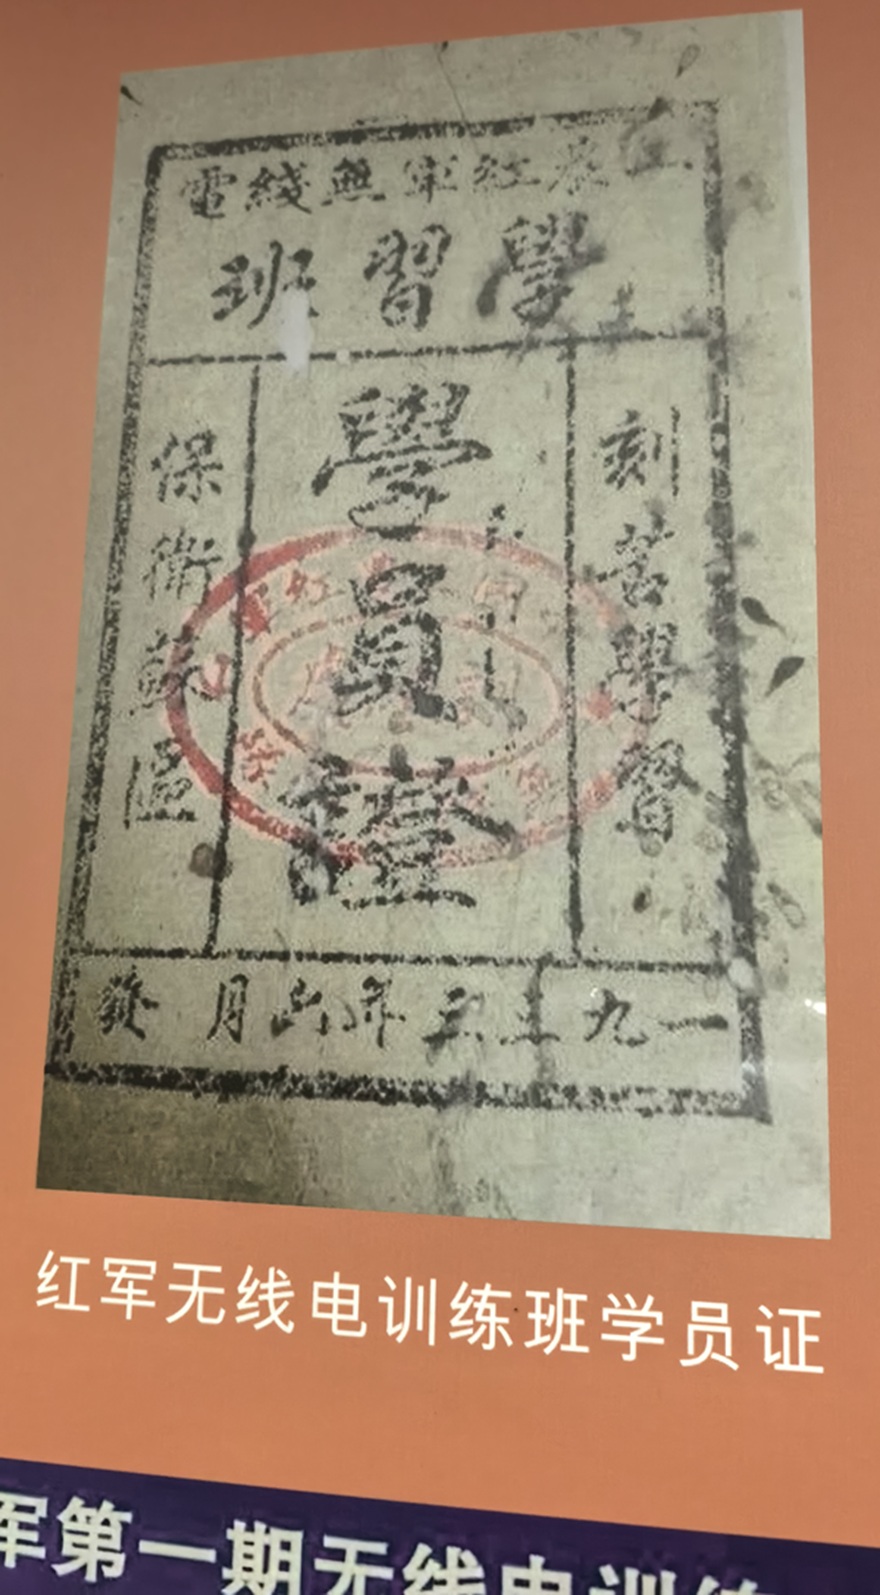 工農紅軍無綫電
學習班
刻苦學習
學員證
保衛蘇區
一九三三年六月 發
红军无线电训练班学员证
军第一期无线电训练